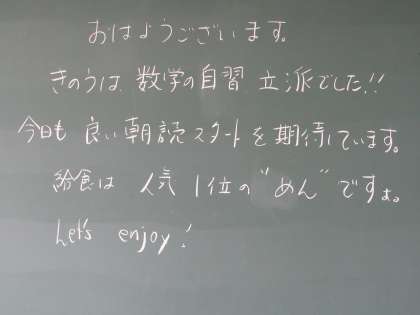 おはようございます。
きのうは 数学の自習 立派でした!!
今日も 良い朝読スタートを期待しています。
給食は 人気 1位の"めん"ですよ。
Let's enjoy!